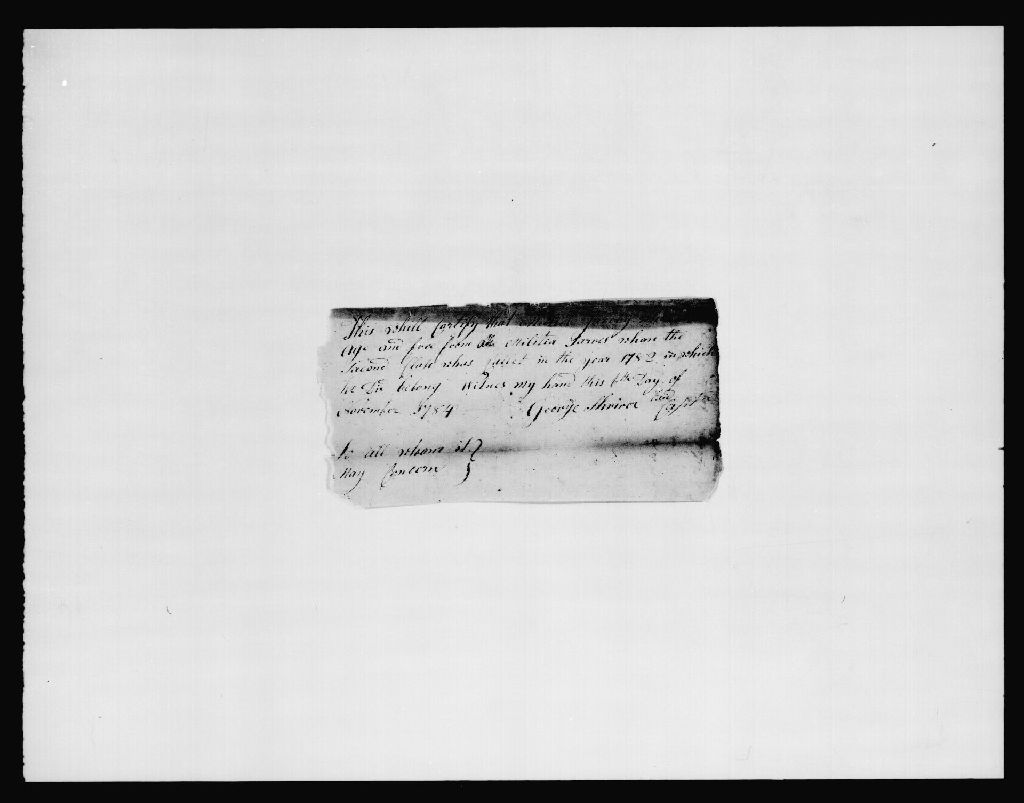 This whill Certify that
Age and free from all Militia Sarves whone the
Second Class whas called in the year 1782 in which
he Did belong Witnes my hand this 6th Day of
November 1784 George Shriver Capt
to all whom it
May Concern